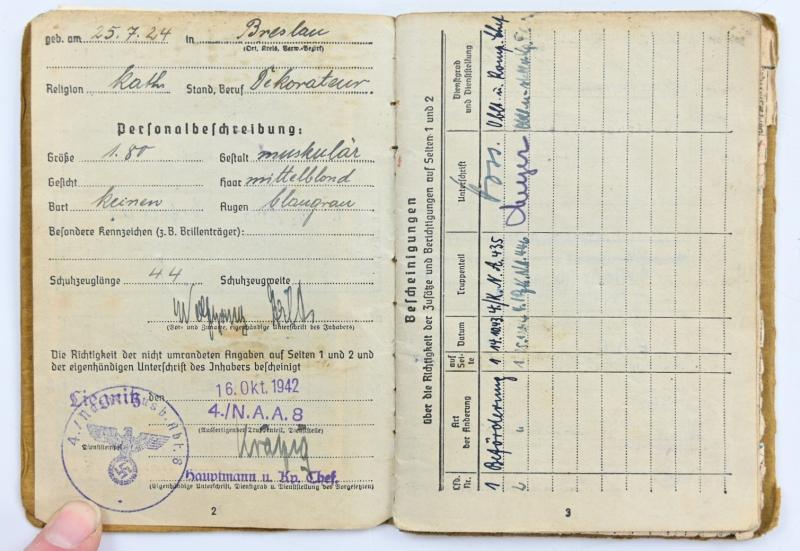 geb. am 25.7.24 in Breslau
(Ort, Kreis, Verw.-Bezirk)
Religion kath. Stand, Beruf Dekorateur.
Personalbeschreibung:
Größe 1.80 Gestalt muskulär
Gesicht Haar mittelblond
Bart keinen Augen blaugrau
Besondere Kennzeichen (z.B. Brillenträger):
Schuhzeuglänge 44 Schuhzeugweite
Wolfgang
(Vor- und Zuname, eigenhändige Unterschrift des Inhabers)
Die Richtigkeit der nicht umrandeten Angaben auf Seiten 1 und 2 und
der eigenhändigen Unterschrift des Inhabers bescheinigt
Liegnitz den 16. Okt. 1942
4./N.A.A.8
(Ausfertigender Truppenteil, Dienststelle)
Hauptmann u. Kp. Chef.
(Eigenhändige Unterschrift, Dienstgrad u. Dienststellung des Vorgesetzten)
2
Bescheinigungen
über die Richtigkeit der Zusätze und Berichtigungen auf Seiten 1 und 2
Lfd. Nr. Art der Änderung auf Seite Datum Truppenteil Unterschrift Dienstgrad und Dienststellung
1 Beförderung 1 14.10.43 Oblt. u. Komp. Chef
3